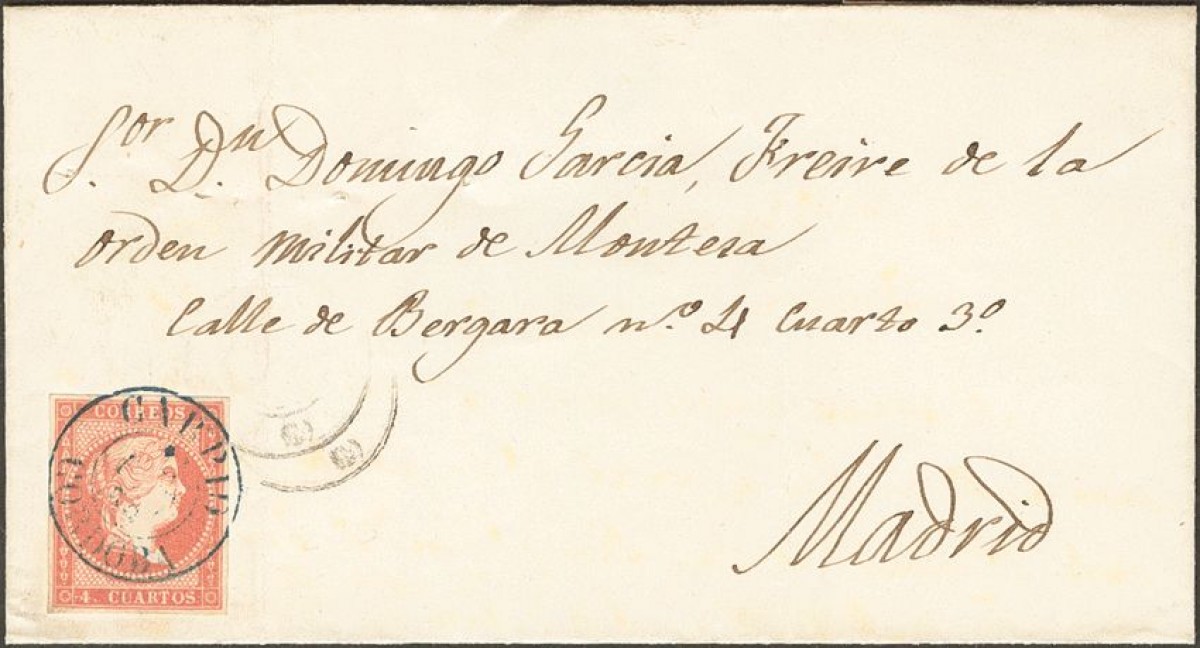 Sor. Dn. Domingo Garcia, Freire de la
orden Militar de Montesa
Calle de Bergara nº. 4 Cuarto 3º.
Madrid
CORREOS
CARPIO
CORDOBA
4. CUARTOS